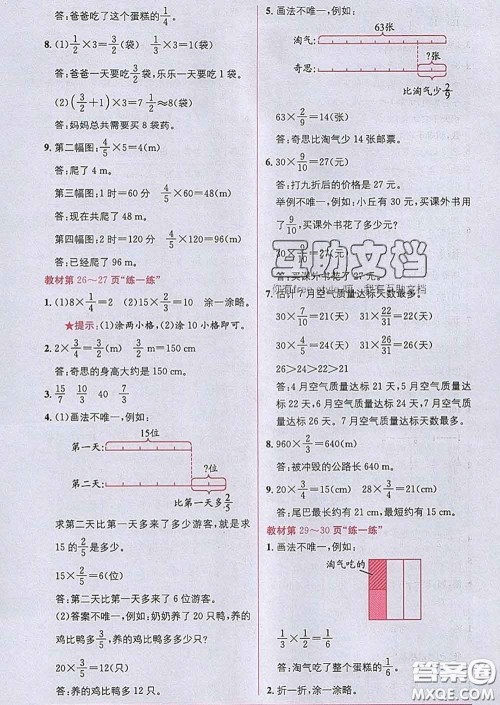 答:爸爸吃了这个蛋糕的1/4。
8. (1)1/2×3=3/2(袋) 1/3×3=1(袋)
答:爸爸一天要吃3/2袋,乐乐一天要吃1袋。
(2)(3/2+1)×3=7 1/2≈8(袋)
答:妈妈总共需要买 8 袋药。
9. 第二幅图:4/5×5=4(m)
答:爬了 4 m。
第三幅图:1 时=60 分 4/5×60=48(m)
答:现在共爬了 48 m。
第四幅图:2 时=120 分 4/5×120=96(m)
答:已经爬了 96 m。
教材第 26～27 页“练一练”
1. (1)8×1/4=2 (2)15×2/3=10 涂一涂略。
★提示:(1)涂两小格,(2)涂 10 小格即可。
2. 2×3/4=3/2(m) 3/2 m=150 cm
答:奇思的身高大约是 150 cm。
3. 15/7 10/3 40 7/3
4. (1)画法不唯一,例如:
15位
第一天:
?位
第二天:
比第一天多2/5
求第二天比第一天多来了多少游客,就是求
15 的2/5是多少。
15×2/5=6(位)
答:第二天比第一天多来了 6 位游客。
(2)答案不唯一,例如:奶奶养了 20 只鸭,养的
鸡比鸭多3/5,养的鸡比鸭多多少只?
20×3/5=12(只)
答:养的鸡比鸭多 12 只。
5. 画法不唯一,例如:
63张
淘气:
?张
奇思:
比淘气少2/9
63×2/9=14(张)
答:奇思比淘气少 14 张邮票。
6. 30×9/10=27(元)
答:打九折后的价格是 27 元。
举例不唯一,例如:小丘有 30 元,买课外书用
了9/10,买课外书花了多少元?
30×9/10=27(元)
答:买课外书花了 27 元。
互助文档
7. 估计 7 月空气质量达标天数最多。
30×7/10=21(天) 31×24/31=24(天)
30×11/15=22(天) 31×26/31=26(天)
26>24>22>21
答:4 月空气质量达标 21 天,5 月空气质量达
标 24 天,6 月空气质量达标 22 天,7 月空气质
量达标 26 天,7 月空气质量达标天数最多。
8. 960×2/3=640(m)
答:被冲毁的公路长 640 m。
9. 28×3/4=21(cm) 28×6/7=24(cm)
答:尾巴最长约有 21 cm,最短约有 24 cm。
教材第 29～30 页“练一练”
1. 画法不唯一,例如:
淘气吃的
1/3×1/2=1/6
答:淘气吃了整个蛋糕的1/6。
2. 折一折,涂一涂略。
答案圈
MXQE.COM